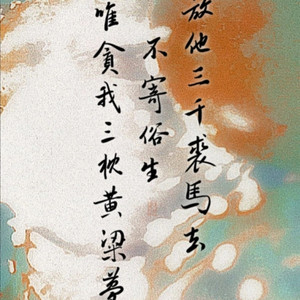 放他三千裘马去
不寄俗生
唯贪我三枕黄梁梦